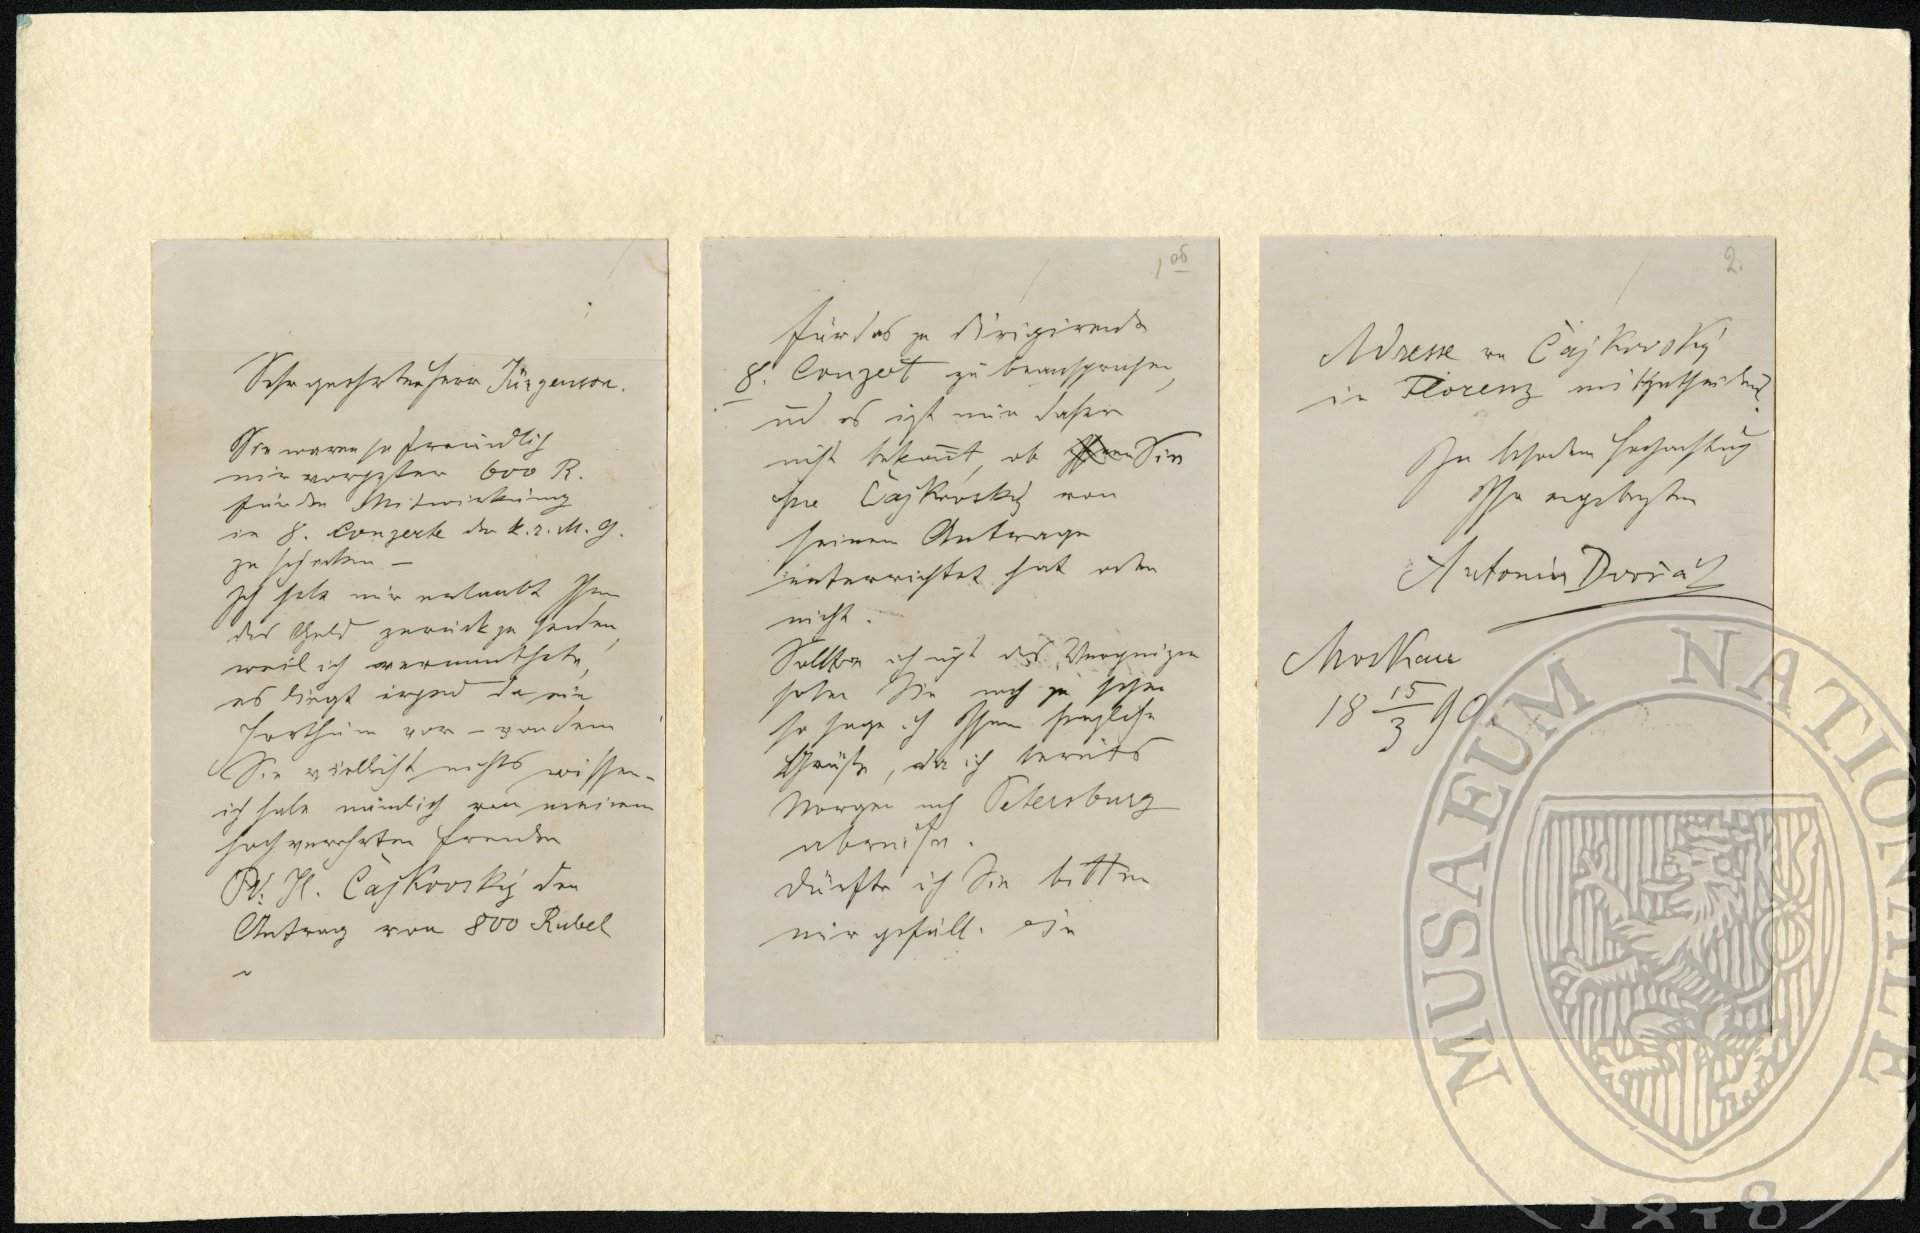 Sehr geehrter Herr Jürgenson.
Sie waren so freundlich
mir vorgestern 600 R.
für die Mitwirkung
in 8. Conzerte der k. r. M. G.
zu schicken —
Ich habe mir erlaubt Ihnen
das Geld zurück zu senden,
weil ich vermuthete,
es liegt irgend da ein
Irrthum vor – von dem
Sie vielleicht nichts wissen –
ich habe nämlich von meinem
hochverehrten Freunde
P. Il. Čajkovský den
Antrag von 800 Rubel
1 ob
für das zu dirigirende
8. Conzert zu beanspruchen,
und es ist mir daher
nicht bekannt, ob Sie
Hr Čajkovský von
seinem Antrage
unterrichtet hat oder
nicht.
Sollte ich nicht das Vergnügen
haben Sie noch zu sehen
so sage ich Ihnen herzliche
Grüße, da ich bereits
Morgen nach Petersburg
abreise.
Dürfte ich Sie bitten
mir gefäll. die
2.
Adresse von Čajkovský
in Florenz mitzutheilen?
In besondrer Hochachtung
Ihr ergebenster
Antonín Dvořák
Moskau
18 15/3 90.
MUSAEUM NATIONALE
1818